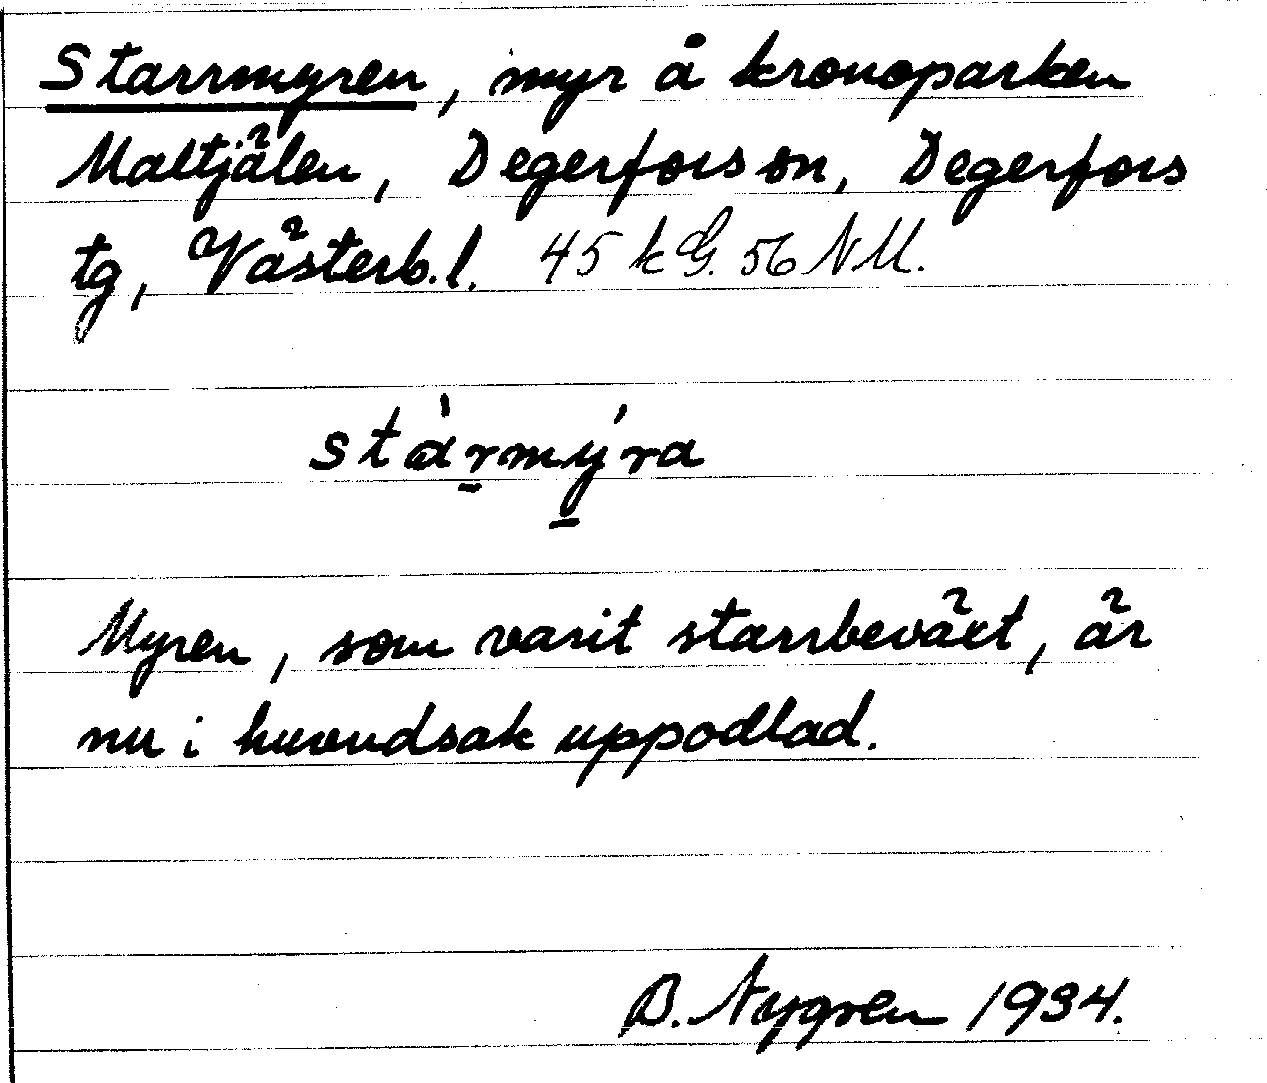 Starrmyren, myr å kronoparken
Maltjälen, Degerfors sn, Degerfors
tg, Västerb. l. 45 k G. 56 NM.
stàrmýra
Myren, som varit starrbeväxt, är
nu i huvudsak uppodlad.
B. Nygren 1934.